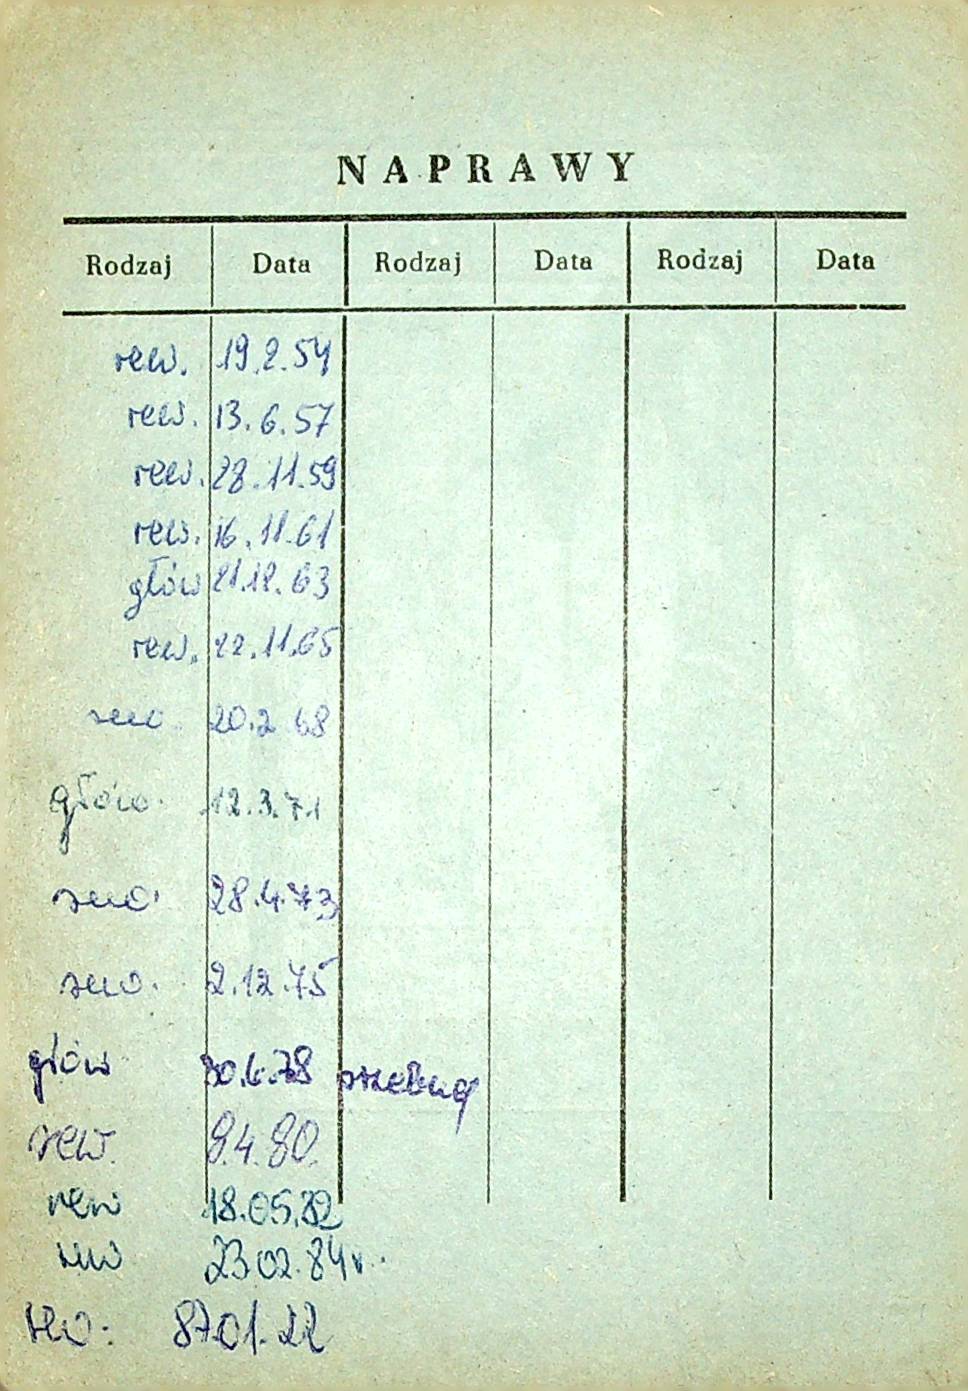 NAPRAWY
Rodzaj Data Rodzaj Data Rodzaj Data
rew. 19.2.54
rew. 13.6.57
rew. 28.11.59
rew. 16.11.61
głów 21.12.63
rew. 22.11.65
rew. 20.2 68
głów. 12.3.71
rew. 28.4.73
rew. 2.12.75
głów 30.6.78
rew. 9.4.80.
rew 18.05.82
rew 23 02.84r.
rew: 87.01.22